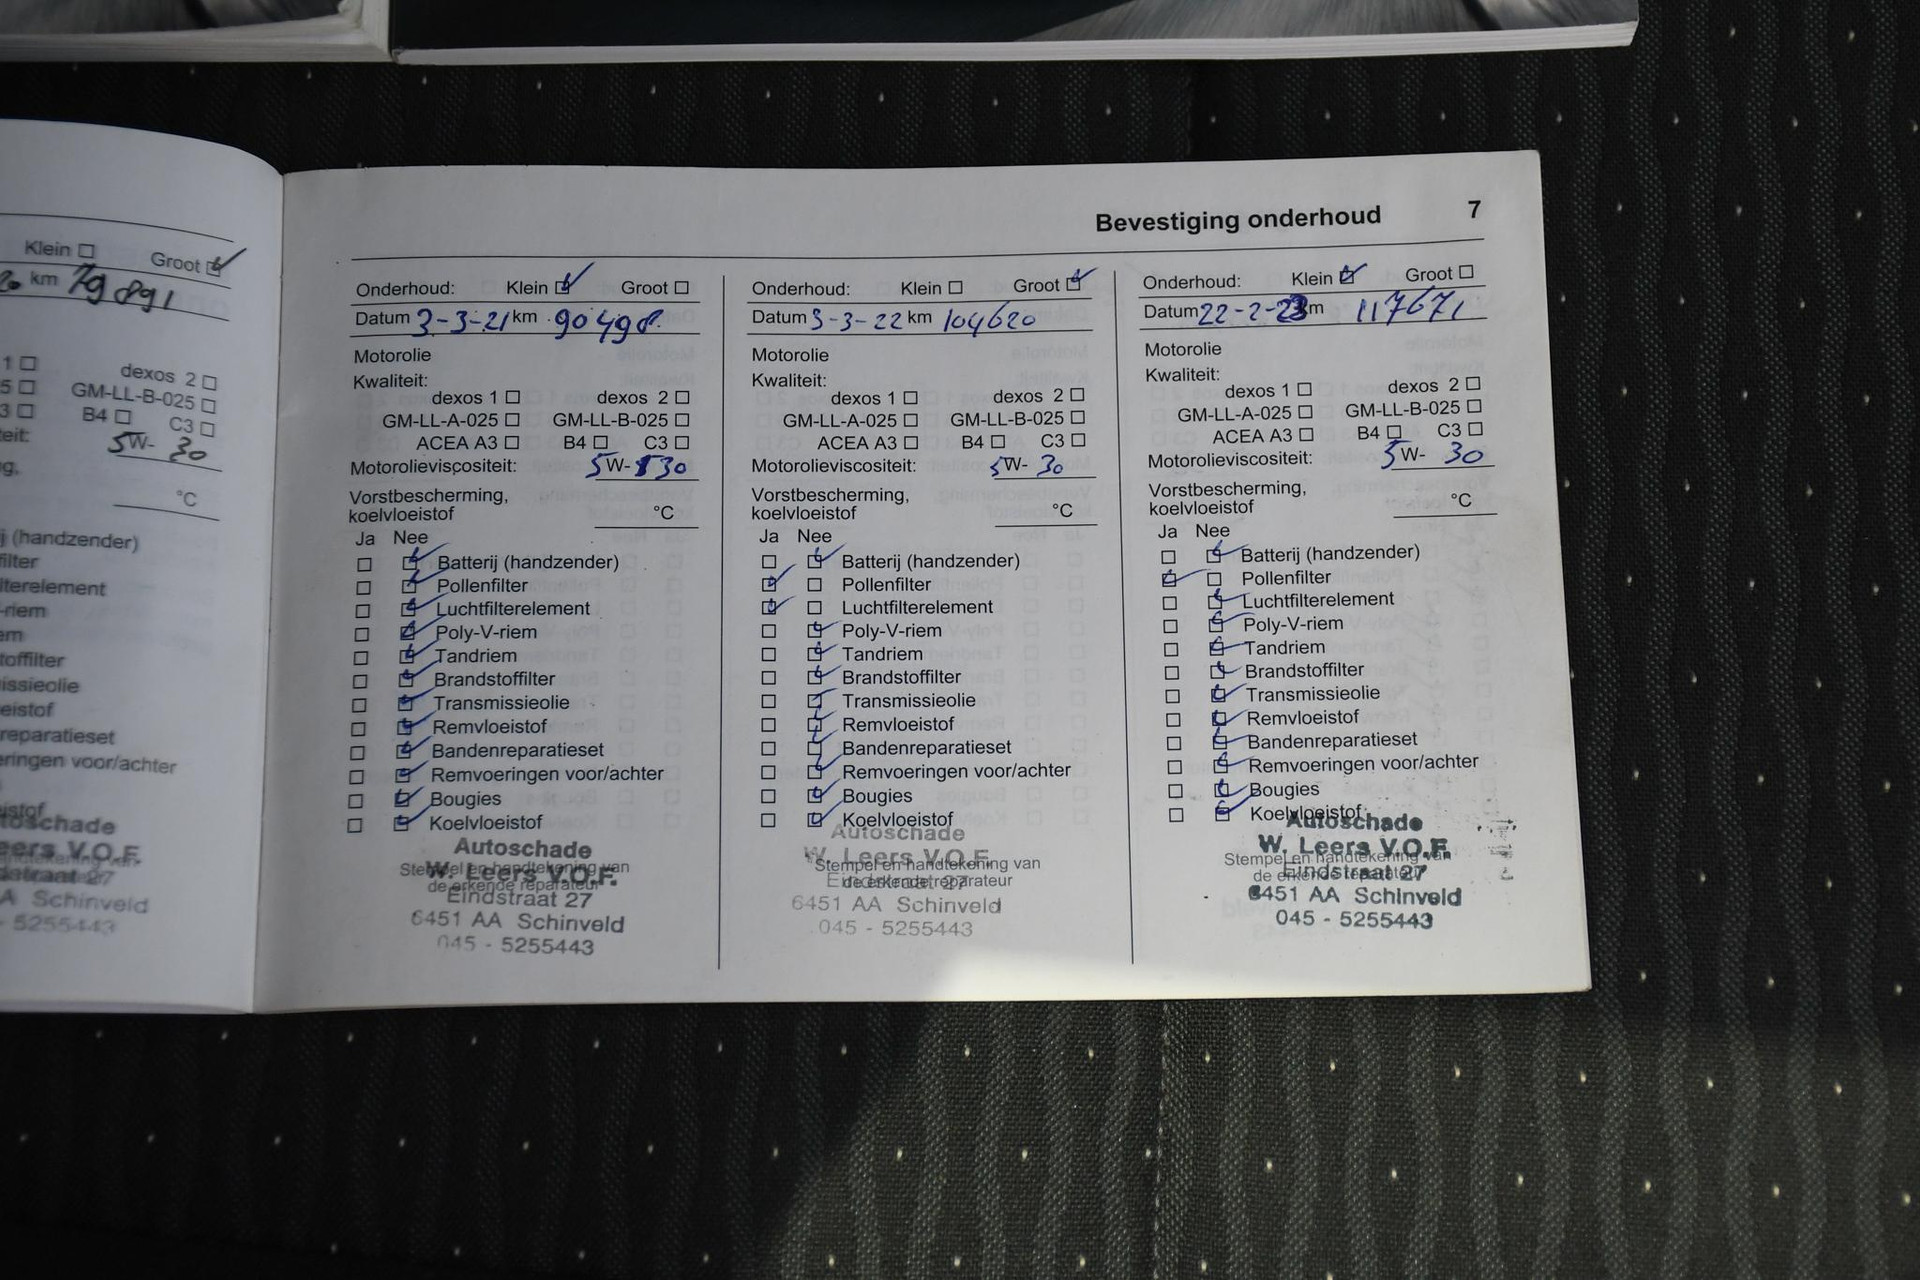 Klein Groot
km 79891
1 dexos 2
5 GM-LL-B-025
3 B4 C3
eit: 5W- 30
g,
°C
j (handzender)
filter
lterelement
-riem
em
toffilter
issieolie
eistof
reparatieset
eringen voor/achter
istof
toschade
eers V.O.F.
dstraat 27
A Schinveld
- 5255443
Bevestiging onderhoud 7
Onderhoud: Klein Groot
Datum 3-3-21 km 90498
Motorolie
Kwaliteit:
dexos 1 dexos 2
GM-LL-A-025 GM-LL-B-025
ACEA A3 B4 C3
Motorolieviscositeit: 5W-30
Vorstbescherming,
koelvloeistof °C
Ja Nee
Batterij (handzender)
Pollenfilter
Luchtfilterelement
Poly-V-riem
Tandriem
Brandstoffilter
Transmissieolie
Remvloeistof
Bandenreparatieset
Remvoeringen voor/achter
Bougies
Koelvloeistof
Autoschade
Stempel en handtekening van
W. Leers V.O.F.
de erkende reparateur
Eindstraat 27
6451 AA Schinveld
045 - 5255443
Onderhoud: Klein Groot
Datum 3-3-22 km 104620
Motorolie
Kwaliteit:
dexos 1 dexos 2
GM-LL-A-025 GM-LL-B-025
ACEA A3 B4 C3
Motorolieviscositeit: 5W- 30
Vorstbescherming,
koelvloeistof °C
Ja Nee
Batterij (handzender)
Pollenfilter
Luchtfilterelement
Poly-V-riem
Tandriem
Brandstoffilter
Transmissieolie
Remvloeistof
Bandenreparatieset
Remvoeringen voor/achter
Bougies
Koelvloeistof
Autoschade
W. Leers V.O.F.
Stempel en handtekening van
Eindstraat 27
de erkende reparateur
6451 AA Schinveld
045 - 5255443
Onderhoud: Klein Groot
Datum 22-2-23 km 117671
Motorolie
Kwaliteit:
dexos 1 dexos 2
GM-LL-A-025 GM-LL-B-025
ACEA A3 B4 C3
Motorolieviscositeit: 5W- 30
Vorstbescherming,
koelvloeistof °C
Ja Nee
Batterij (handzender)
Pollenfilter
Luchtfilterelement
Poly-V-riem
Tandriem
Brandstoffilter
Transmissieolie
Remvloeistof
Bandenreparatieset
Remvoeringen voor/achter
Bougies
Koelvloeistof
Autoschade
W. Leers V.O.F.
Stempel en handtekening van
Eindstraat 27
de erkende reparateur
6451 AA Schinveld
045 - 5255443